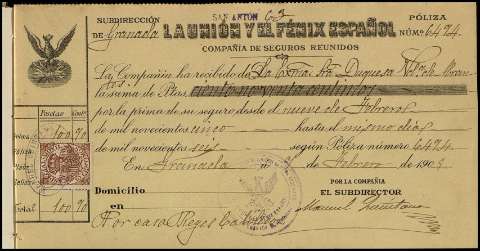 SAN ANTÓN 63
SUBDIRECCIÓN
DE Granada
LA UNIÓN Y EL FÉNIX ESPAÑOL
COMPAÑÍA DE SEGUROS REUNIDOS
PÓLIZA
NÚM.º 6424
La Compañía ha recibido de la Exma Sra Duquesa
la suma de Ptas. ciento noventa céntimos
por la prima de su seguro desde el nueve de Febrero
de mil novecientos cinco hasta el mismo día
de mil novecientos seis según Póliza número 6424
En Granada de Febrero de 1905
Pesetas
100 90
Total 100 90
POR LA COMPAÑÍA
EL SUBDIRECTOR
Manuel Quintana
Domicilio
en
Por casa Reyes Católicos